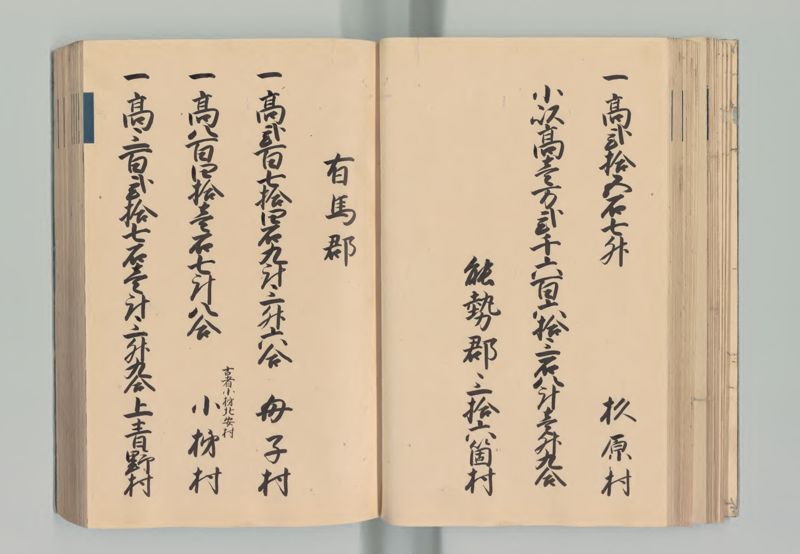 一高弐拾五石七升 杉原村
小以高壱万弐千六百六拾三石八斗壱升九合
能勢郡三拾六箇村
有馬郡
一高弐百七拾四石九斗三升六合 母子村
一高八百四拾壱石七斗八合 小枋村
古者小枋北安村
一高三百弐拾七石壱斗三升九合 上青野村